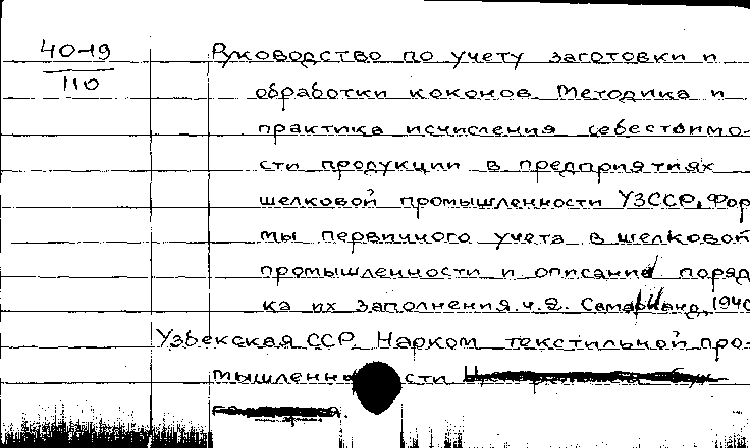 40-19
110
Руководство по учету заготовки и
обработки коконов. Методика и
практика исчисления себестоимо-
сти продукции в предприятиях
шелковой промышленности УЗССР. Фор
мы первичного учета в шелковой
промышленности и описание поряд
ка их заполнения. ч.2. Самарканд, 1940
Узбекская ССР. Нарком текстильной про-
мышленности